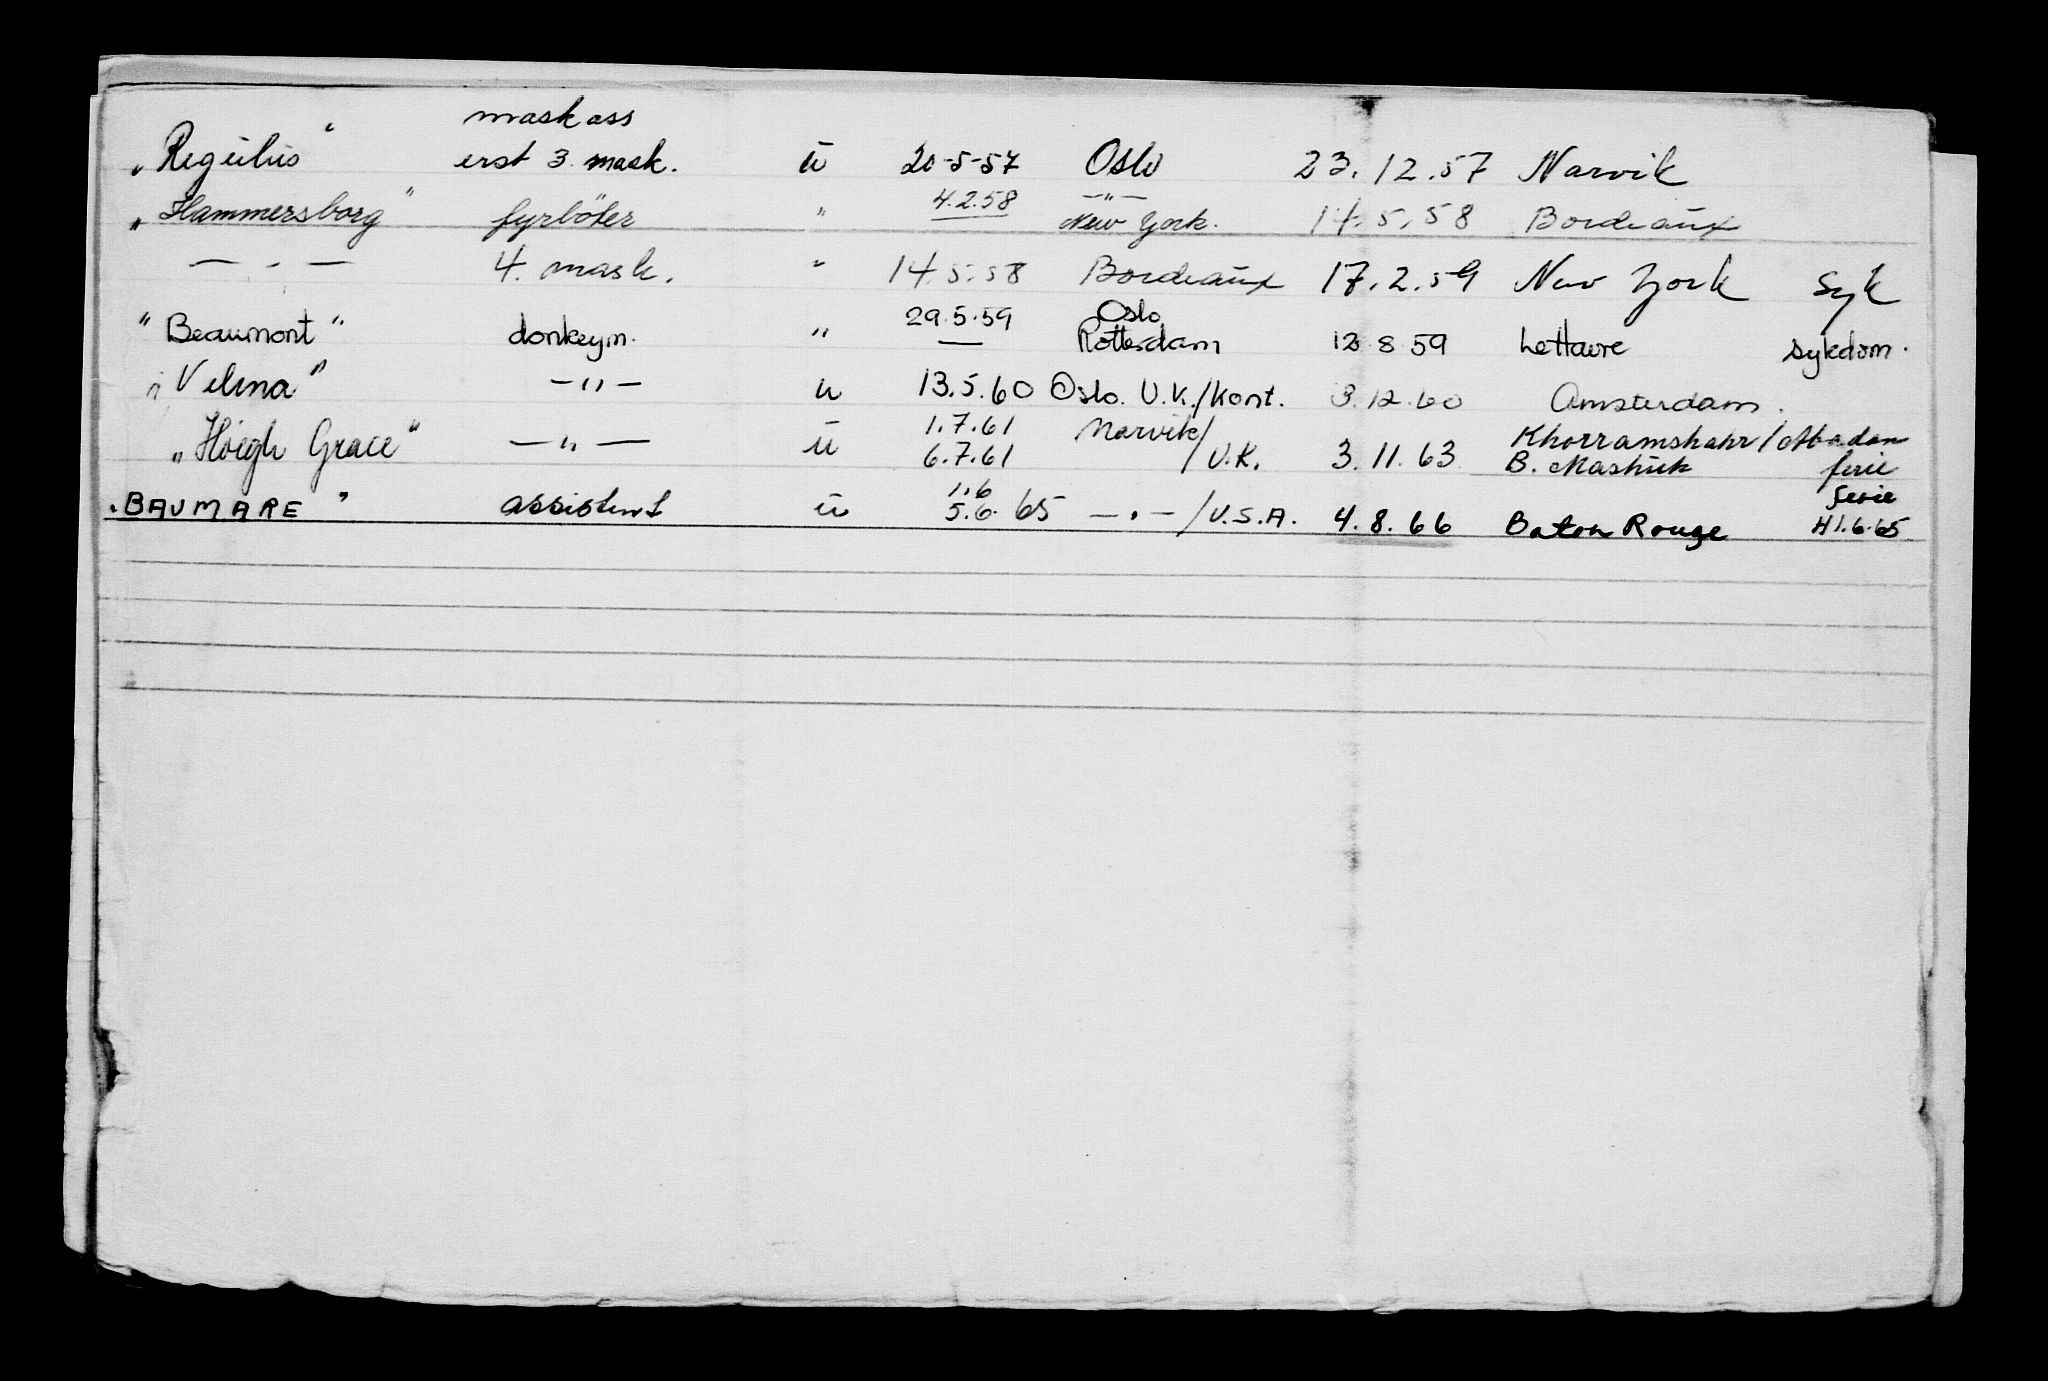 maskass
„Regulus" erst 3. mask. u 20-5-57 Oslo 23.12.57 Narvik
4.2.58 —"—
„Hammersborg" fyrböter " New York. 14.5.58 Bordeaux
— " — 4. mask. " 14.5.58 Bordeaux 17.2.59 New York Syk
29.5.59 Oslo
"Beaumont" donkeym. " — Rotterdam 12 8 59 LeHavre Sykdom.
"Velma" —"— u 13.5.60 Oslo. U.K./Kont. 3.12.60 Amsterdam.
1.7.61 Narvik/ Khorramshahr/Abadan
„Höegh Grace" —"— u 6.7.61 /U.K. 3.11.63 B. Mashuk ferie
1.6 ferie
"BAUMARE" assistent u 5.6.65 —"—/U.S.A. 4.8.66 Baton Rouge 1.6.65